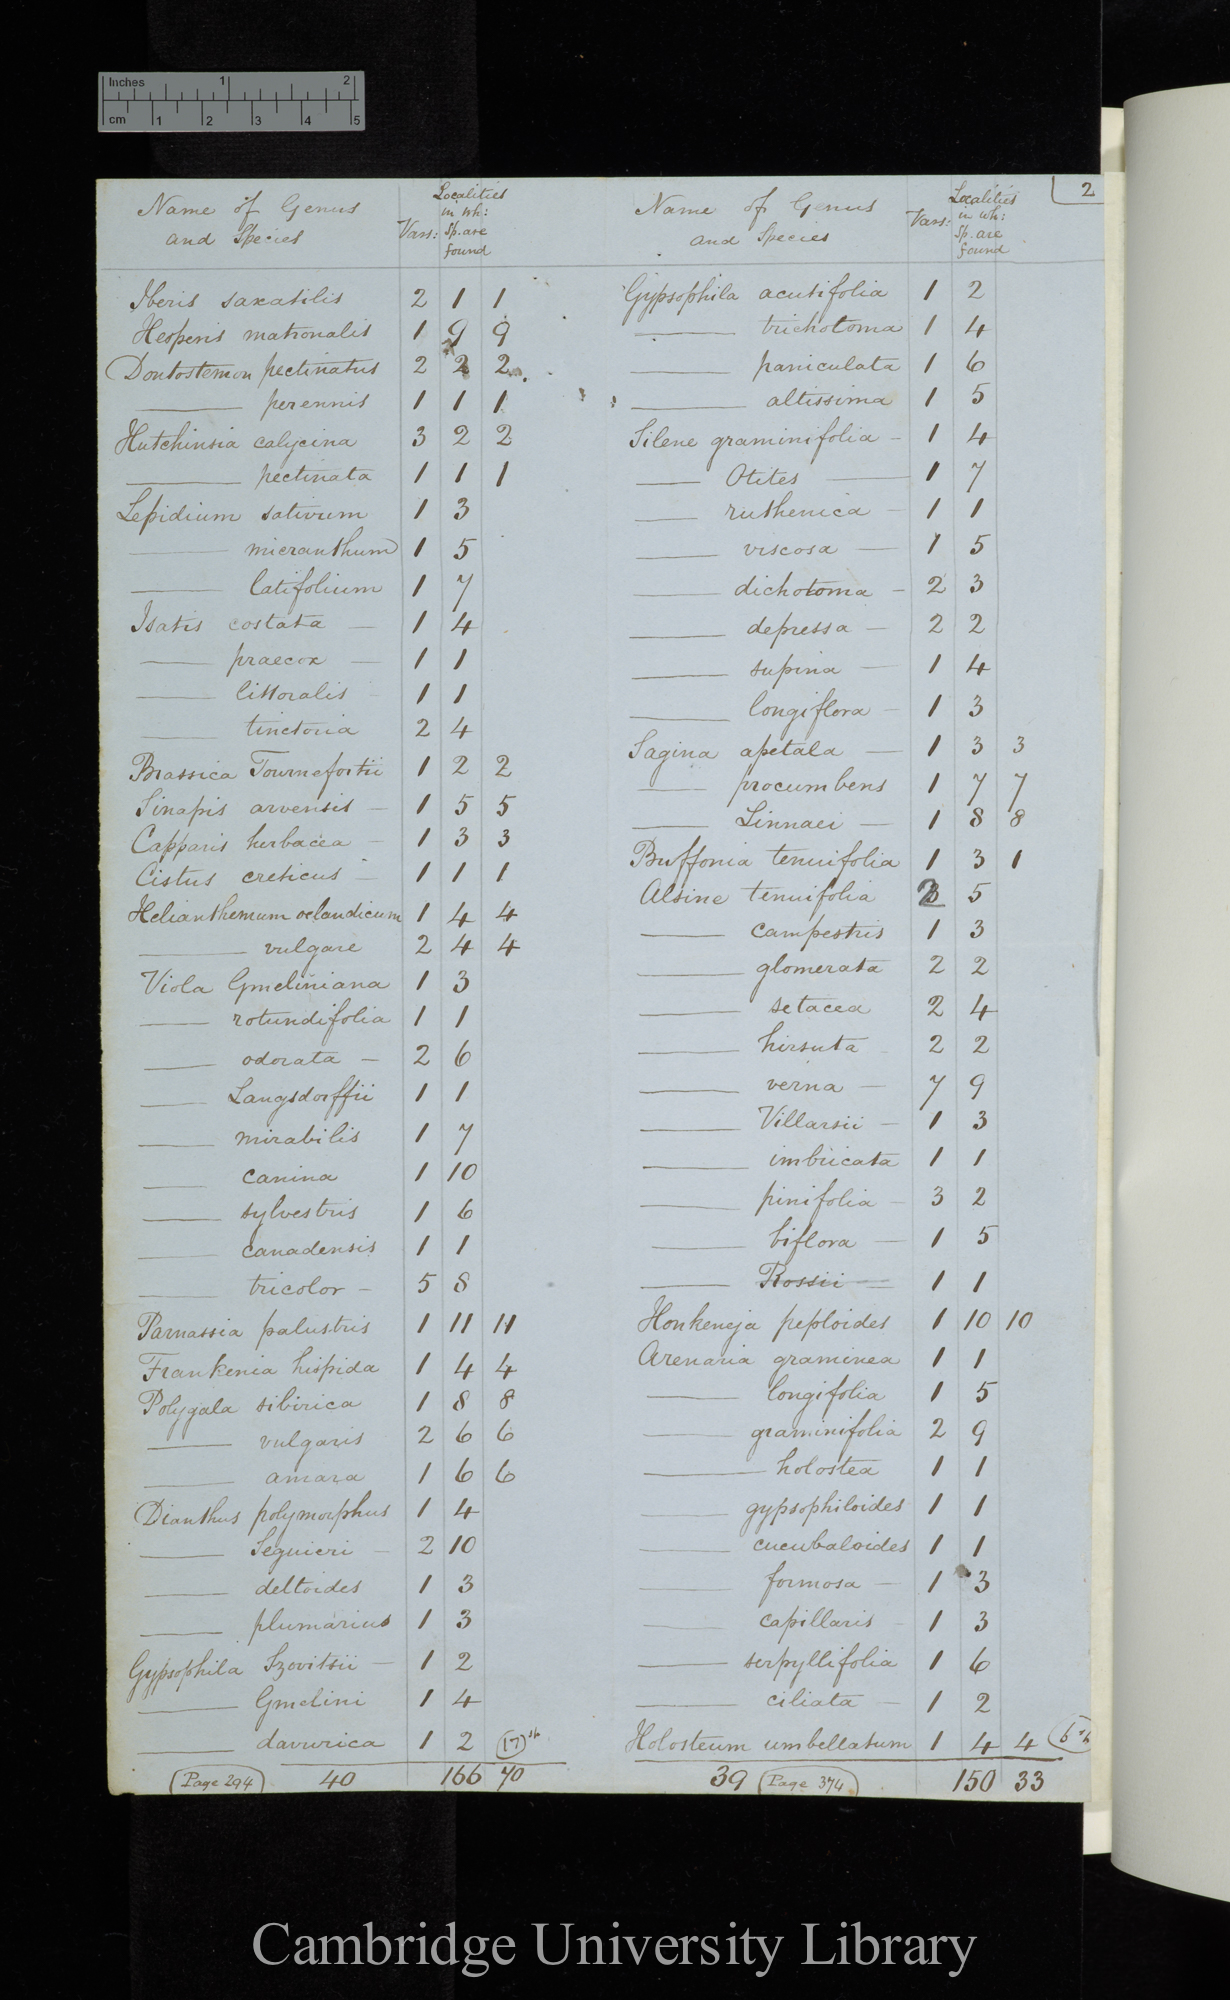 Inches 1 2
cm 1 2 3 4 5
2
Name of Genus and Species Vars: Localities in wh: Sp. are found
Iberis saxatilis 2 1 1
Hesperis matronalis 1 9 9
Dontostemon pectinatus 2 2 2
——— perennis 1 1 1
Hutchinsia calycina 3 2 2
——— pectinata 1 1 1
Lepidium sativum 1 3
——— micranthum 1 5
——— latifolium 1 7
Isatis costata — 1 4
——— praecox — 1 1
——— littoralis - 1 1
——— tinctoria 2 4
Brassica Tournefortii 1 2 2
Sinapis arvensis — 1 5 5
Capparis herbacea — 1 3 3
Cistus creticus — 1 1 1
Helianthemum oelandicum 1 4 4
——— vulgare 2 4 4
Viola Gmeliniana 1 3
——— rotundifolia 1 1
——— odorata — 2 6
——— Langsdorffii 1 1
——— mirabilis 1 7
——— canina 1 10
——— sylvestris 1 6
——— canadensis 1 1
——— tricolor — 5 8
Parnassia palustris 1 11 11
Frankenia hispida 1 4 4
Polygala sibirica 1 8 8
——— vulgaris 2 6 6
——— amara 1 6 6
Dianthus polymorphus 1 4
——— Seguieri — 2 10
——— deltoides 1 3
——— plumarius 1 3
Gypsophila Szovitsii — 1 2
——— Gmelini 1 4
——— davurica 1 2 (17)
Page 294 40 166 70
Name of Genus and Species Vars: Localities in wh: Sp. are found
Gypsophila acutifolia 1 2
——— trichotoma 1 4
——— paniculata 1 6
——— altissima 1 5
Silene graminifolia — 1 4
——— Otites ——— 1 7
——— ruthenica — 1 1
——— viscosa — 1 5
——— dichotoma — 2 3
——— depressa — 2 2
——— supina — 1 4
——— longiflora — 1 3
Sagina apetala — 1 3 3
——— procumbens 1 7 7
——— Linnaei — 1 8 8
Buffonia tenuifolia 1 3 1
Alsine tenuifolia 5
——— campestris 1 3
——— glomerata 2 2
——— setacea 2 4
——— hirsuta 2 2
——— verna — 7 9
——— Villarsii — 1 3
——— imbricata 1 1
——— pinifolia — 3 2
——— biflora — 1 5
——— Rossii — 1 1
Honkeneja peploides 1 10 10
Arenaria graminea 1 1
——— longifolia 1 5
——— graminifolia 2 9
——— holostea 1 1
——— gypsophiloides 1 1
——— cucubaloides 1 1
——— formosa — 1 3
——— capillaris - 1 3
——— serpyllifolia 1 6
——— ciliata — 1 2
Holosteum umbellatum 1 4 4
39 Page 374 150 33
Cambridge University Library